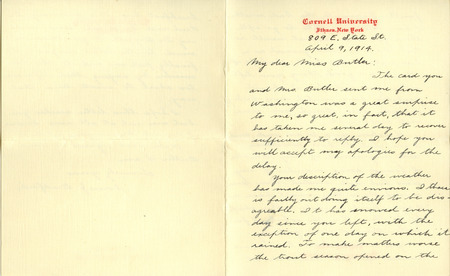 Cornell University
Ithaca, New York
809 E. State St.
April 9, 1914.
My dear Miss Butler:
The card you
and Mrs. Butler sent me from
Washington was a great surprise
to me, so great, in fact, that it
has taken me several day to recover
sufficiently to reply. I hope you
will accept my apologies for the
delay.
Your description of the weather
has made me quite envious.
is fairly outdoing itself to be dis-
agreable. It has snowed every
day since you left, with the
exception of one day on which it
rained. To make matters worse
the trout season opened on the